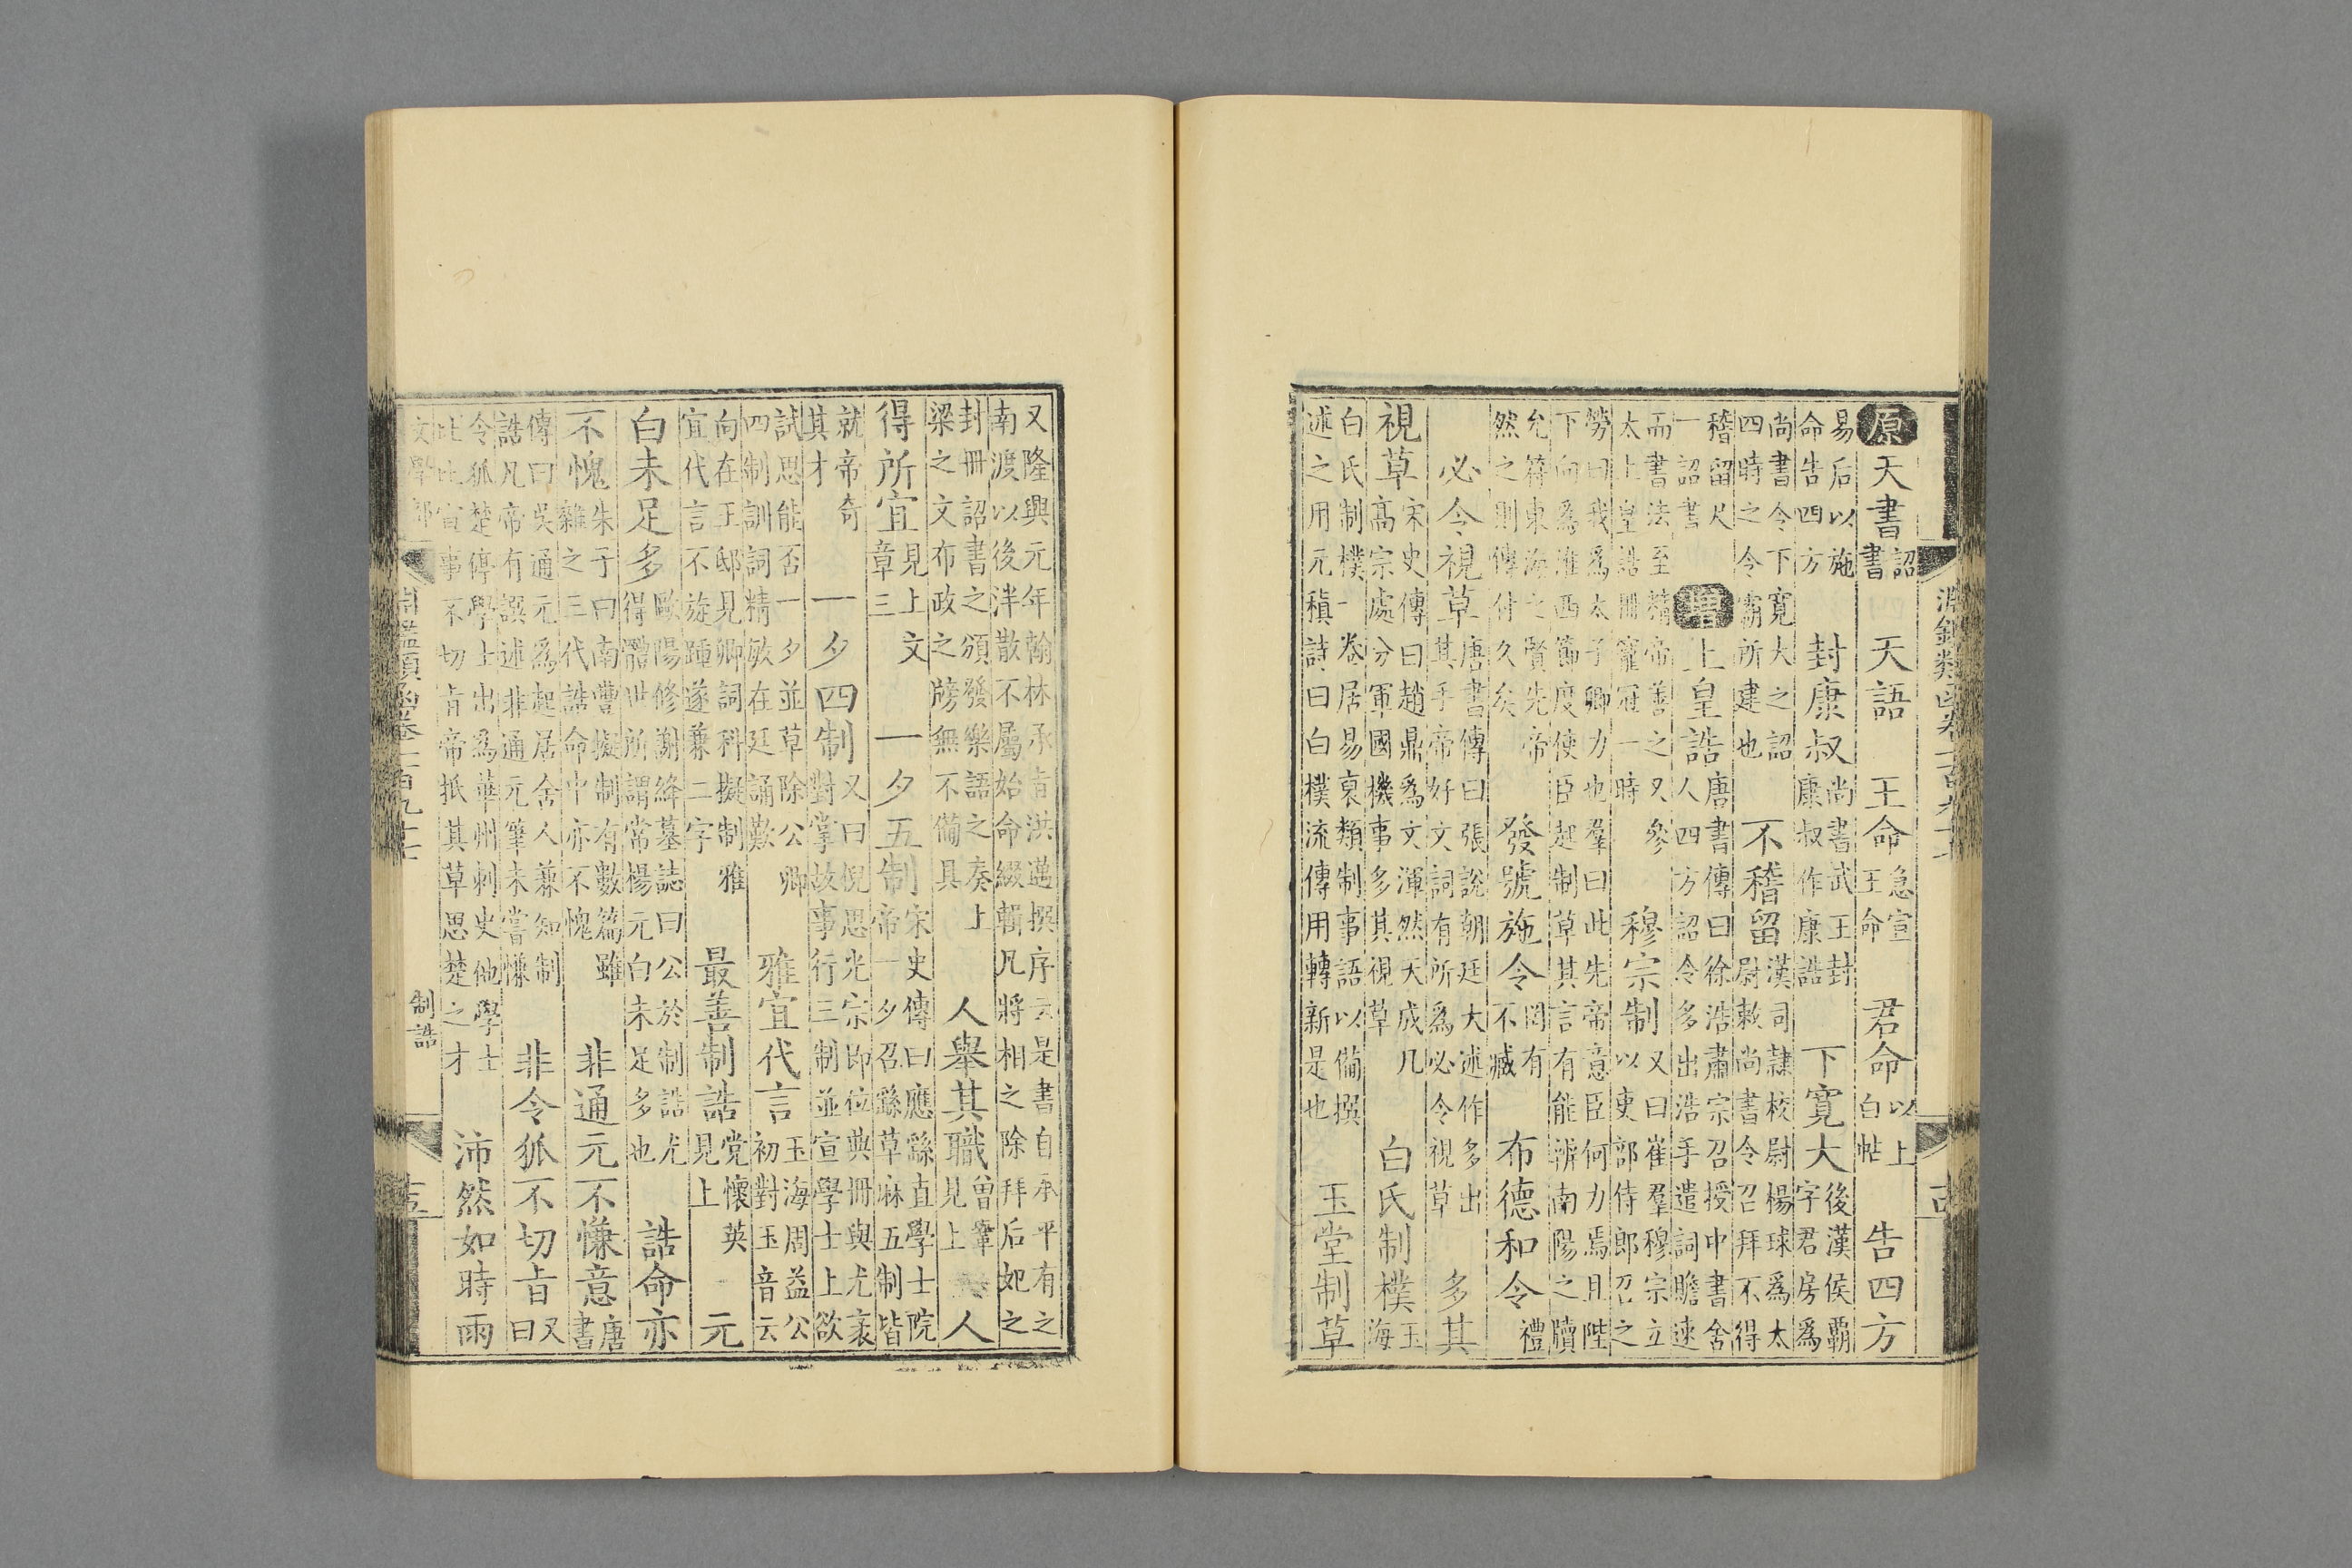 原天書詔書 天語 王命急宣王命 君命以上白帖 告四方
易后以施命告四方 封康叔尚書武王封康叔作康誥 下寬大後漢侯霸字君房爲
尚書令下寬大之詔四時之令霸所建也 不稽留漢司隸校尉楊球爲太尉敕尚書令召拜不得
稽留尺一詔書 增上皇誥唐書傳曰徐浩肅宗召授中書舍人四方詔令多出浩手遣詞贍速
而書法至精帝善之又參太上皇誥冊寵冠一時 穆宗制又曰崔羣穆宗立以吏部侍郎召之
勞曰我爲太子卿力也羣曰此先帝意臣何力焉且陛下向爲淮西節度使臣起制草其言有能辨南陽之牘
允符東海之賢先帝然之則傳付久矣 發號施令罔有不臧 布德和令禮
必令視草唐書傳曰張說朝廷大述作多出其手帝好文詞有所爲必令視草 多其
視草宋史傳曰趙鼎爲文渾然天成凡高宗處分軍國機事多其視草 白氏制樸玉海
白氏制樸一卷居易裒類制事語以備撰述之用元稹詩曰白樸流傳用轉新是也 玉堂制草
又隆興元年翰林承旨洪邁撰序云是書自承平有之南渡以後泮散不屬始命綴輯凡將相之除拜后妃之
封冊詔書之頒發樂語之奏上梁之文布政之牓無不備具 人舉其職曾鞏見上 人
得所宜見上文章三 一夕五制宋史傳曰應繇直學士院帝一夕召繇草麻五制皆
就帝奇其才 一夕四制又曰倪思光宗即位典冊與尤袤對掌故事行三制並宣學士上欲
試思能否一夕並草除公卿四制訓詞精敏在廷誦歎 雅宜代言玉海周益公初對玉音云
向在王邸見卿詞科擬制雅宜代言不旋踵遂兼二字 最善制誥党懷英見上 元
白未足多歐陽修謝絳墓誌曰公於制誥尤得體世所謂常楊元白未足多也 誥命亦
不愧朱子曰南豐擬制有數篇雖雜之三代誥命中亦不愧 非通元不慊意唐書
傳曰吳通元爲起居舍人兼知制誥凡帝有譔述非通元筆未嘗慊 非令狐不切旨又曰
令狐楚停學士出爲華州刺史他學士比比宣事不切旨帝抵其草思楚之才 沛然如時雨
制誥